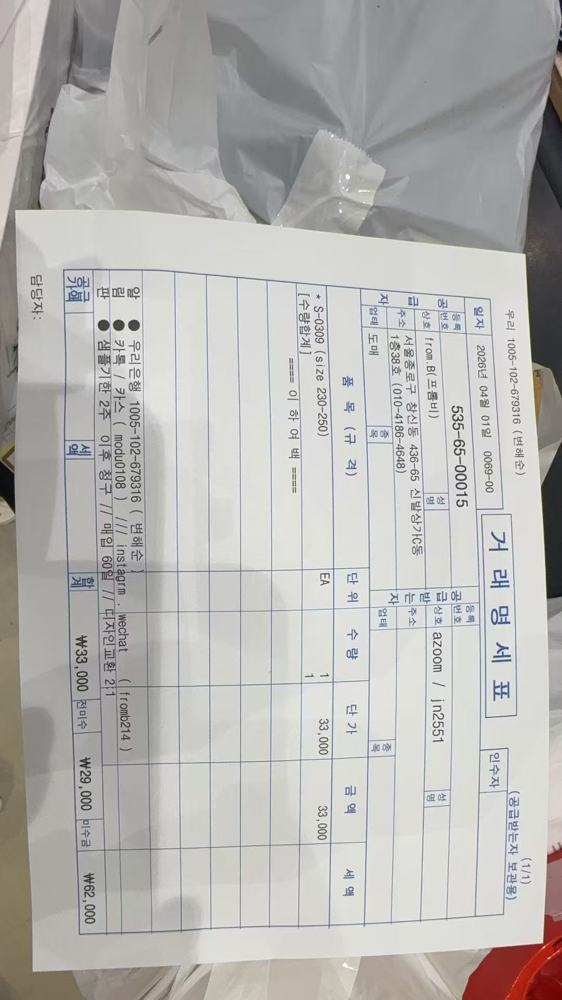 우리 1005-102-679316 (변해순)
(1/1)
거 래 명 세 표
(공급받는자 보관용)
일자 2026년 04월 01일 0069-00
인수자
공급자
등록번호 535-65-00015
상호 from.B(프롬비) 성명
주소 서울종로구 창신동 436-65 신발상가C동
1층38호 (010-4186-4648)
업태 도매 종목
공급받는자
등록번호
상호 azoom / jn2551 성명
주소
업태 종목
품 목 (규 격) 단위 수량 단가 금액 세액
* S-0309 (size 230-250) EA 1 33,000 33,000
[수량합계] 1
==== 이 하 여 백 ====
알림판
● 우리은행 1005-102-679316 ( 변해순 )
● 카톡 / 카스 ( modu0108 ) /// instagrm . wechat ( fromb214 )
● 샘플기한 2주 이후 청구 // 매입 60일 // 디자인교환 2:1
공급가액 세액 합계 ₩33,000 전미수 ₩29,000 미수금 ₩62,000
담당자: